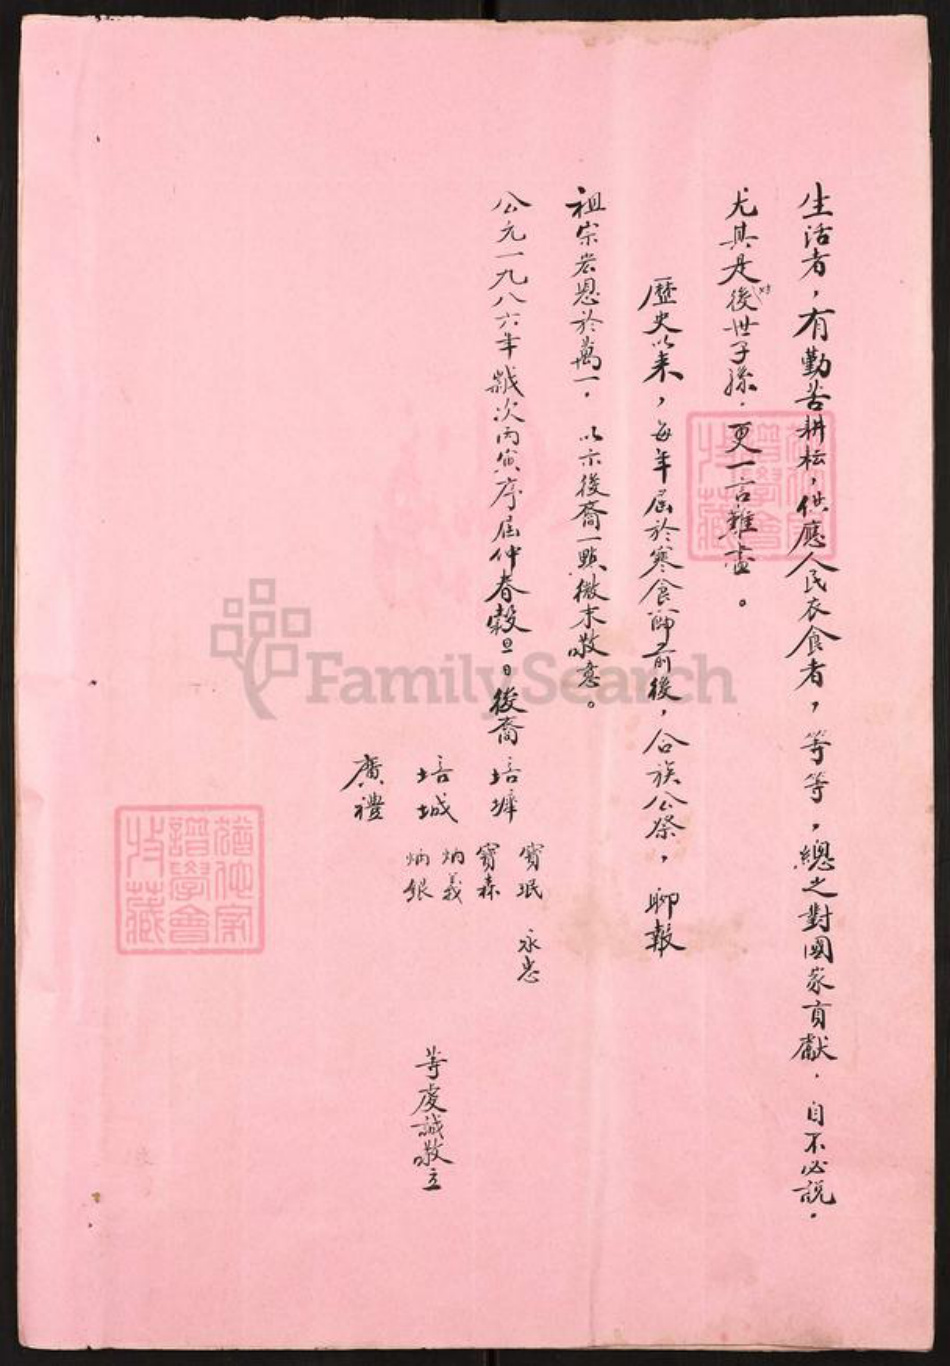 生活者，有勤苦耕耘，供應人民衣食者，等等，總之對國家貢獻．自不必說．
尤其是對後世子孫．更一言難盡。
歷史以来，每年屆於寒食節前後，合族公祭，聊報
祖宗宏恩於萬一．以示後裔一點微末敬意。
公元一九八六年歲次丙寅序屆仲春穀旦日後裔
培墀
培城
廣禮
寶珉
寶森
炳義
炳銀
永忠
等虔誠敬立
猶他家
譜學會
收藏
猶他家
譜學會
收藏
FamilySearch